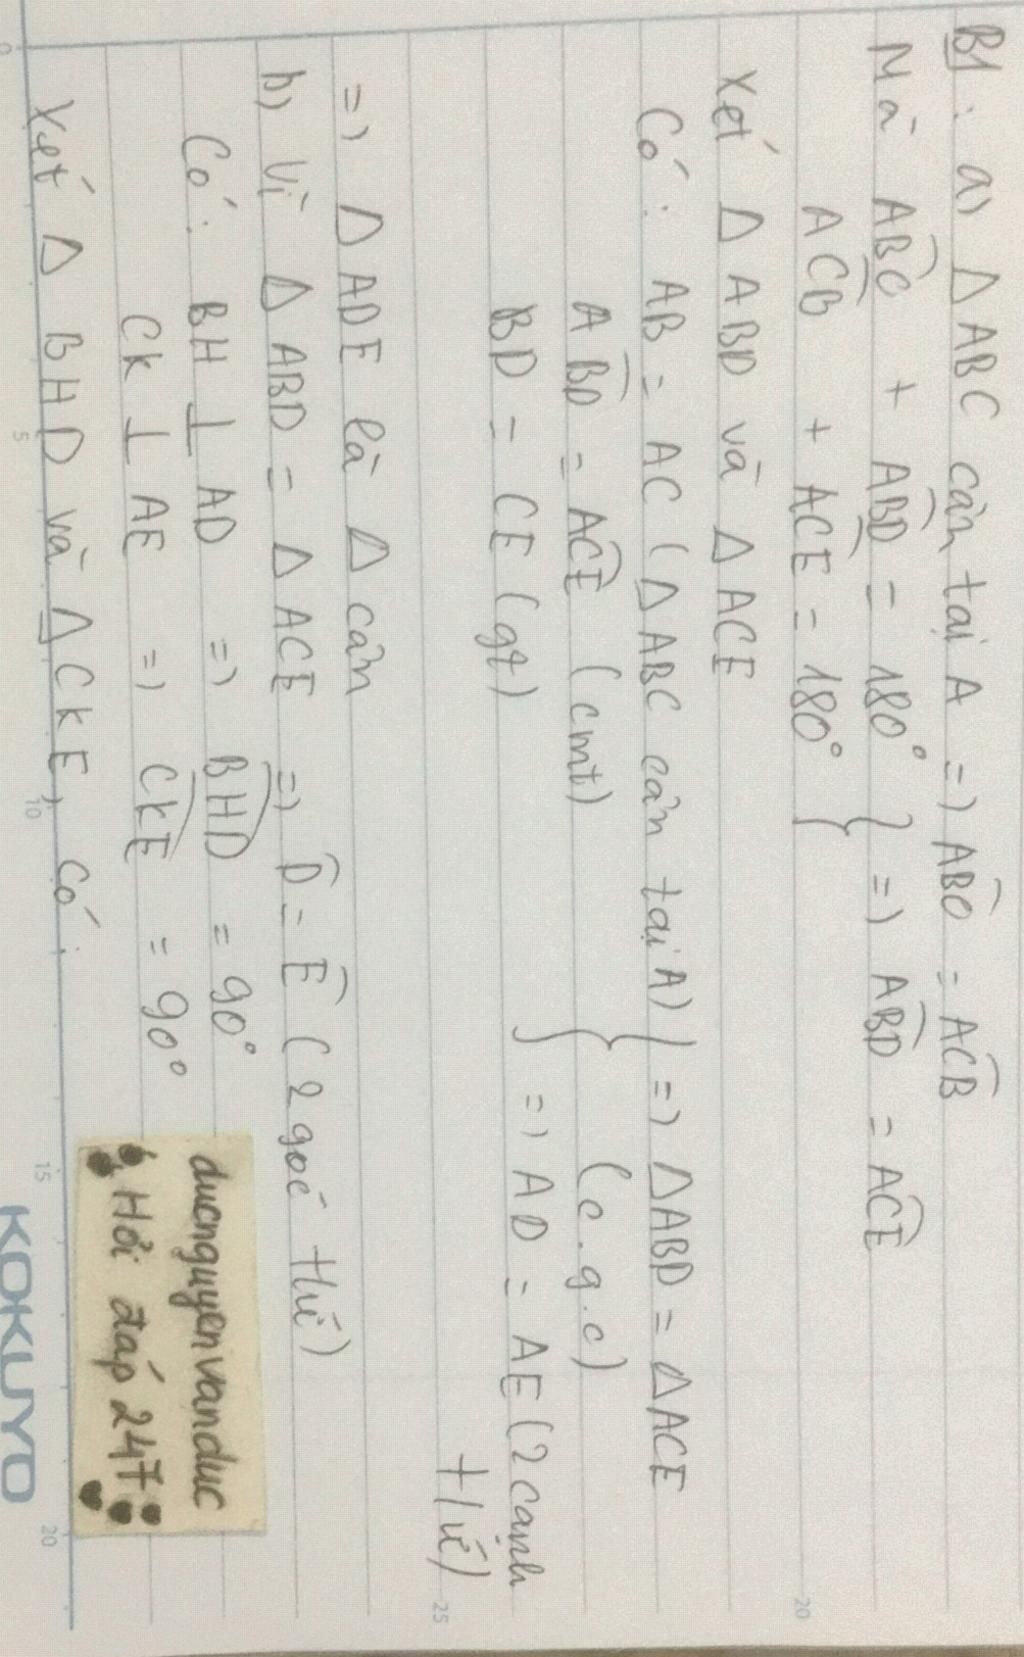 B1: a) Δ ABC cân tại A => ABC = ACB
Mà ABC + ABD = 180° } => ABD = ACE
ACB + ACE = 180° }
Xét Δ ABD và Δ ACE
Có: AB = AC (Δ ABC cân tại A) } => ΔABD = ΔACE
ABD = ACE (cmt) (c.g.c)
BD = CE (gt) } => AD = AE (2 cạnh
t/ứ)
=> Δ ADE là Δ cân
b) Vì Δ ABD = Δ ACE => D = E (2 goć t/ứ)
Có: BH ⊥ AD => BHD = 90°
CK ⊥ AE => CKE = 90°
Xét Δ BHD và Δ CKE, có:
ducnguyenvanduc
Hỏi đáp 247
KOKUYO
0
5
10
15
20
20
25